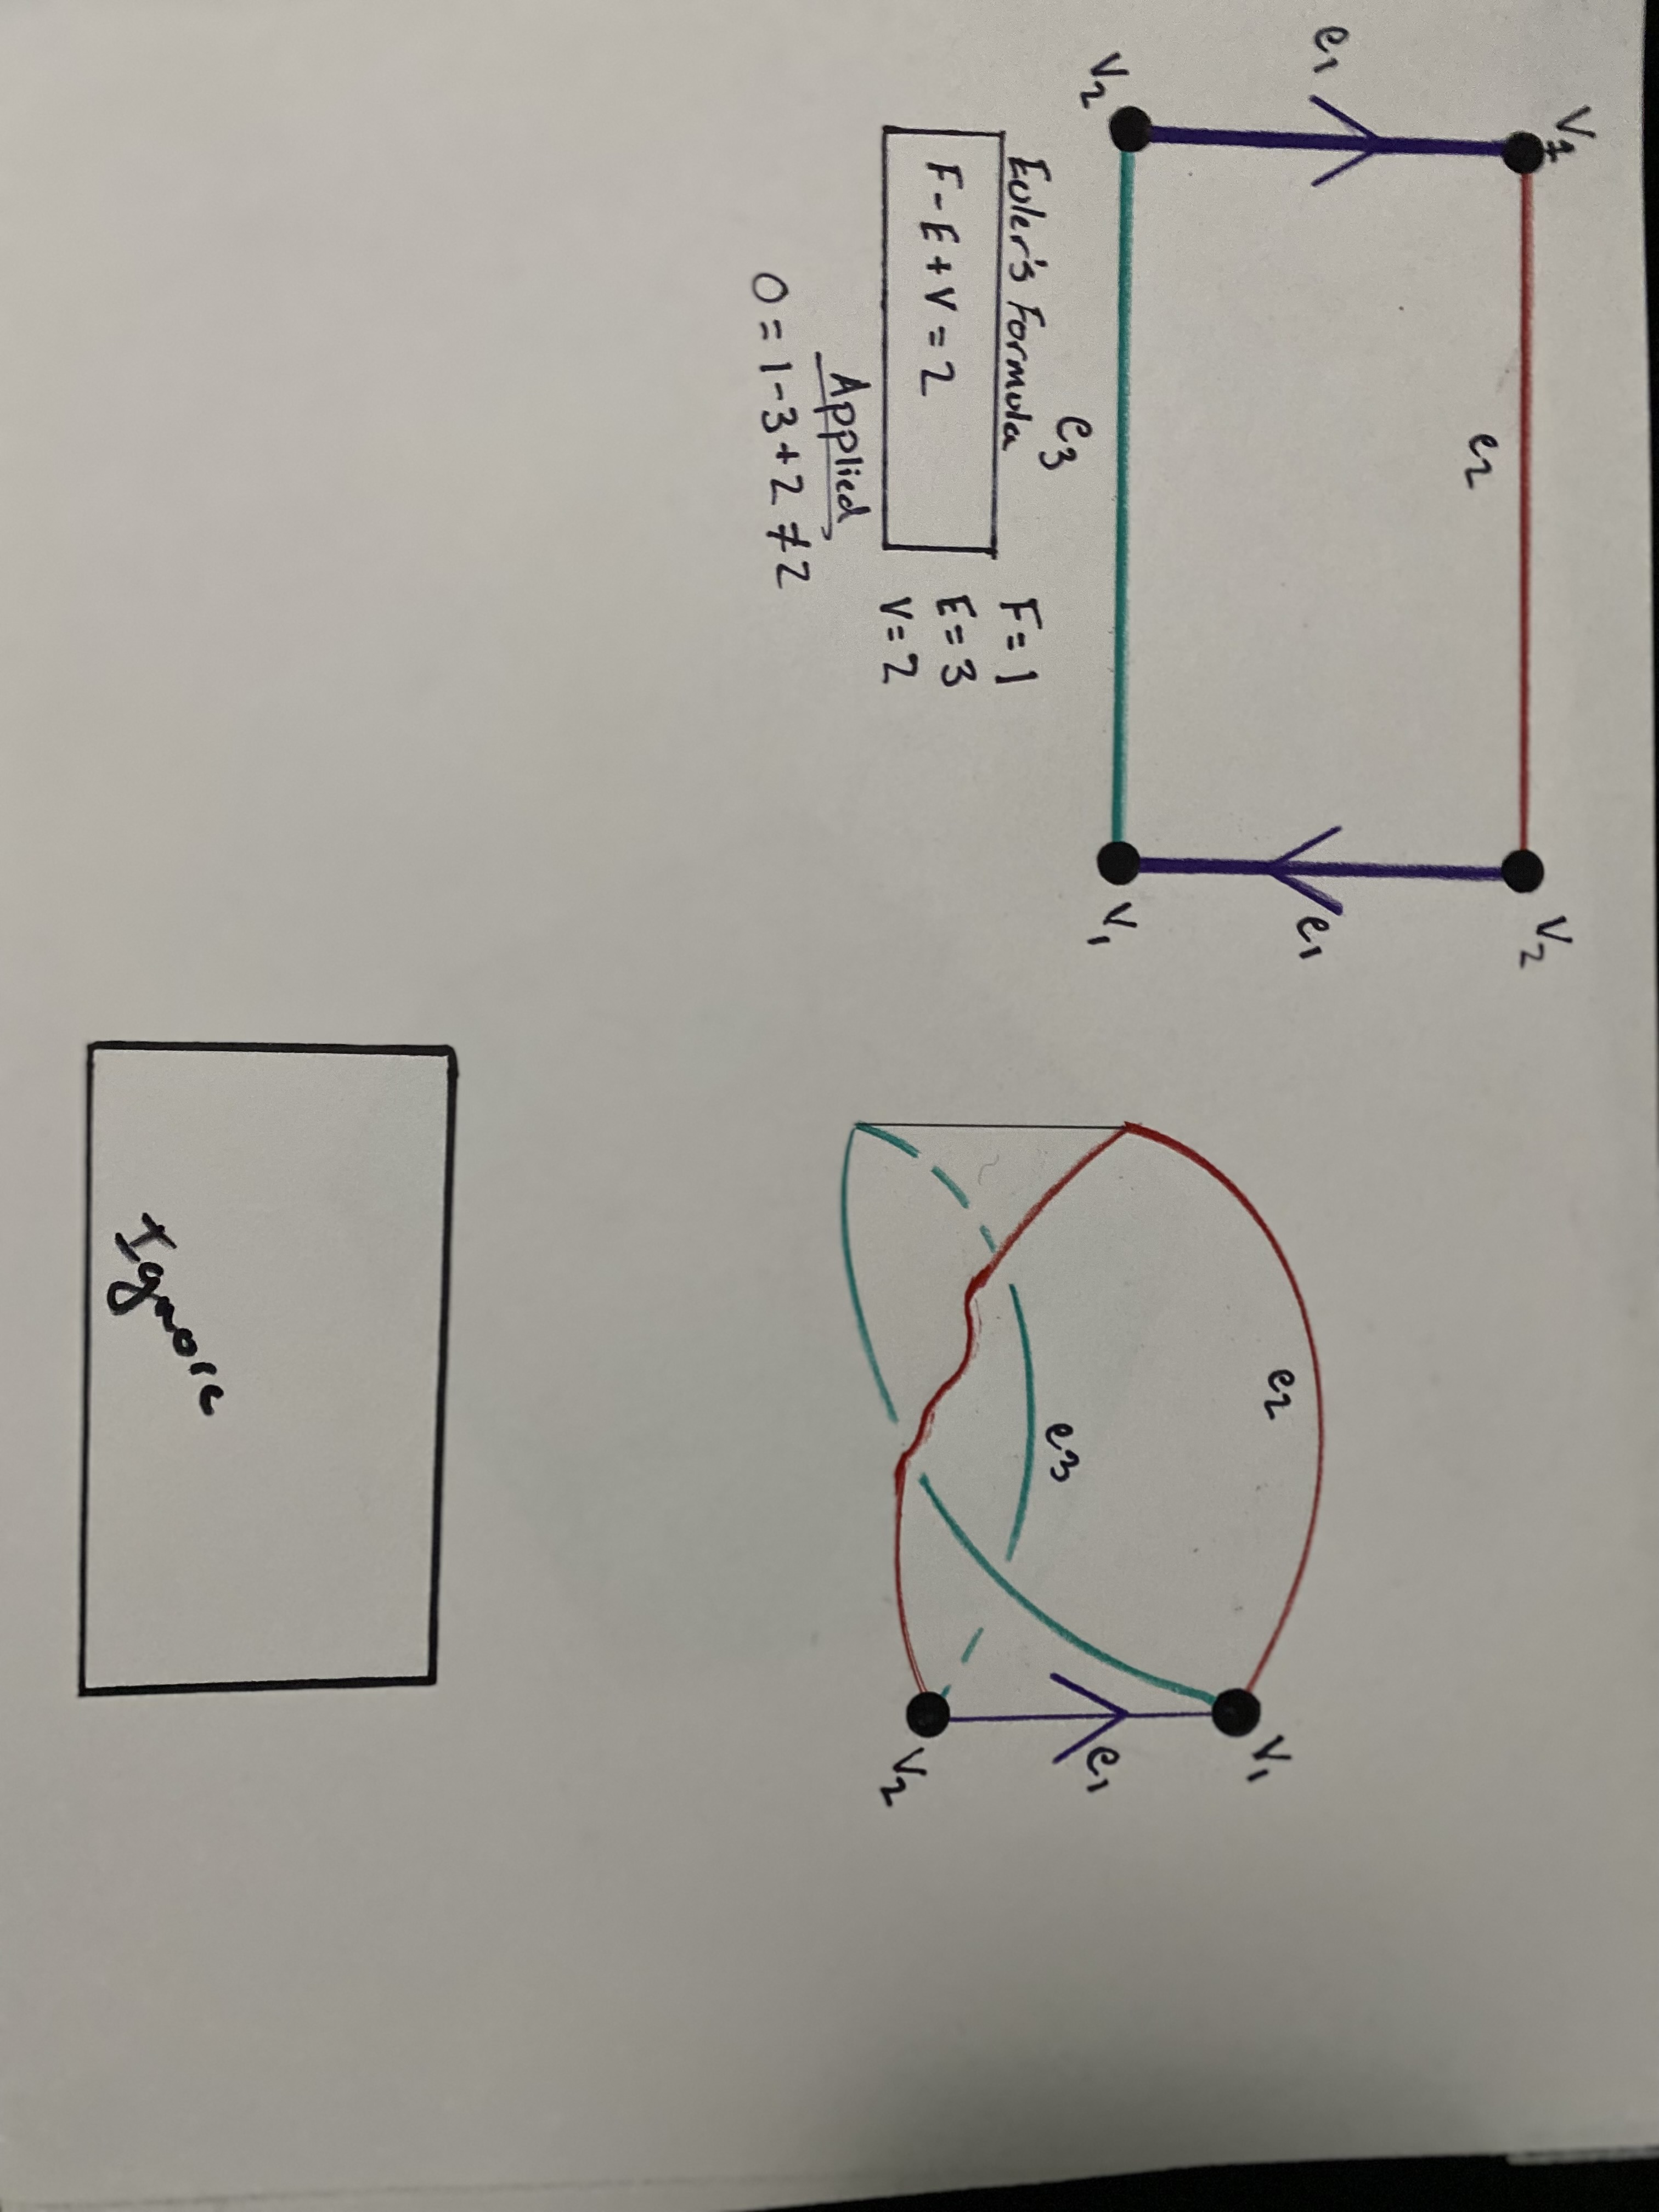 V₁
e₂
V₂
e₁
e₁
V₂
e₃
V₁
Euler's Formula
F - E + V = 2
F = 1
E = 3
V = 2
Applied
0 = 1 - 3 + 2 ≠ 2
e₂
V₁
e₃
e₁
V₂
Ignore